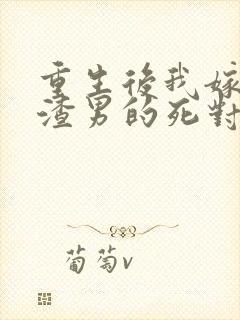 重生後我嫁
渣男的死對
葡萄v